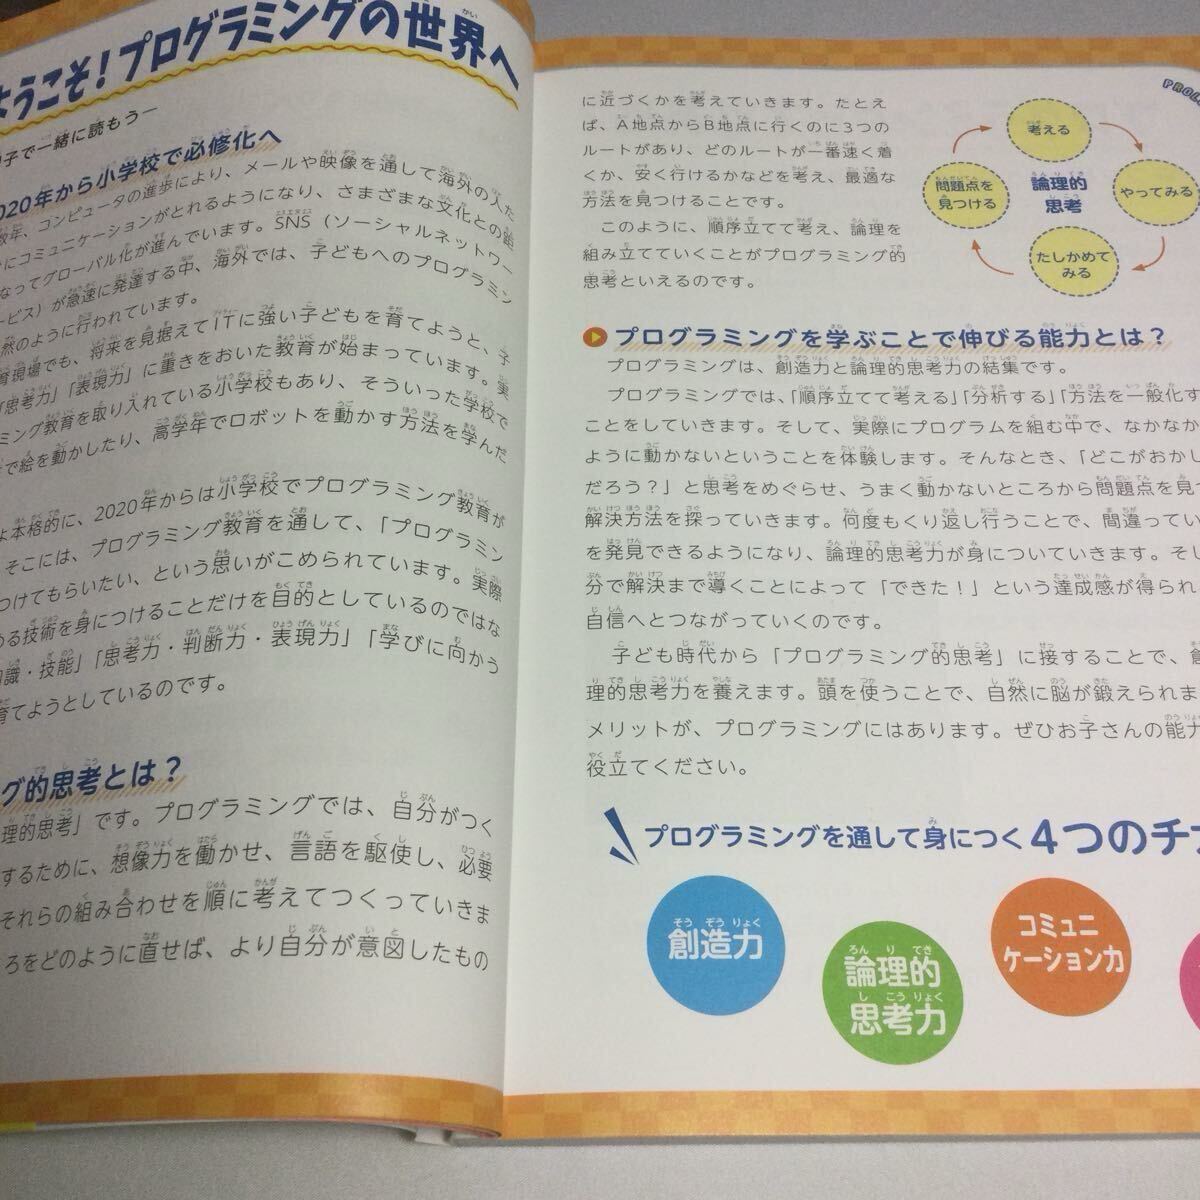 ようこそ！プログラミングの世界へ
子で一緒に読もうー
2020年から小学校で必修化へ
数年、コンピュータの進歩により、メールや映像を通して海外の人た
にコミュニケーションがとれるようになり、さまざまな文化との
なってグローバル化が進んでいます。SNS（ソーシャルネットワー
ービス）が急速に発達する中、海外では、子どもへのプログラミン
然のように行われています。
育現場でも、将来を見据えてITに強い子どもを育てようと、子
「思考力」「表現力」に重きをおいた教育が始まっています。実
ミング教育を取り入れている小学校もあり、そういった学校で
で絵を動かしたり、高学年でロボットを動かす方法を学んだ
よ本格的に、2020年からは小学校でプログラミング教育が
そこには、プログラミング教育を通して、「プログラミン
つけてもらいたい、という思いがこめられています。実際
める技術を身につけることだけを目的としているのではな
知識・技能」「思考力・判断力・表現力」「学びに向かう
育てようとしているのです。
グ的思考とは？
理的思考」です。プログラミングでは、自分がつく
するために、想像力を働かせ、言語を駆使し、必要
それらの組み合わせを順に考えてつくっていきま
ろをどのように直せば、より自分が意図したもの
に近づくかを考えていきます。たとえ
ば、A地点からB地点に行くのに3つの
ルートがあり、どのルートが一番速く着
くか、安く行けるかなどを考え、最適な
方法を見つけることです。
このように、順序立てて考え、論理を
組み立てていくことがプログラミング的
思考といえるのです。
考える
やってみる
たしかめて
みる
問題点を
見つける
論理的
思考
プログラミングを学ぶことで伸びる能力とは？
プログラミングは、創造力と論理的思考力の結集です。
プログラミングでは、「順序立てて考える」「分析する」「方法を一般化す
ことをしていきます。そして、実際にプログラムを組む中で、なかなか
ように動かないということを体験します。そんなとき、「どこがおかし
だろう？」と思考をめぐらせ、うまく動かないところから問題点を見つ
解決方法を探っていきます。何度もくり返し行うことで、間違ってい
を発見できるようになり、論理的思考力が身についていきます。そし
分で解決まで導くことによって「できた！」という達成感が得られ
自信へとつながっていくのです。
子ども時代から「プログラミング的思考」に接することで、創
理的思考力を養えます。頭を使うことで、自然に脳が鍛えられま
メリットが、プログラミングにはあります。ぜひお子さんの能力
役立てください。
プログラミングを通して身につく4つのチ
創造力
論理的
思考力
コミュニ
ケーション力